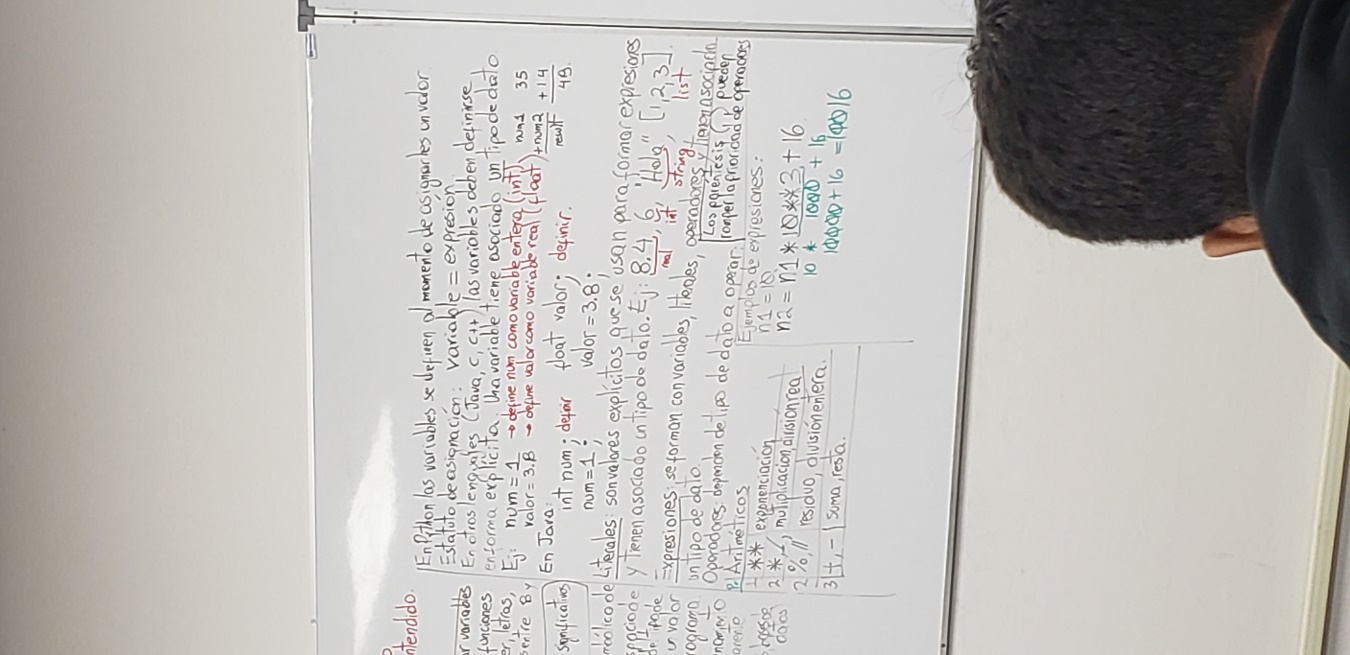 ntendido.
r variables
funciones
er, letras,
entre 8 y
significativos
mbólico de
spacio de
un valor
rograma.
En Python las variables se definen al momento de asignarles un valor.
Estatuto de asignación: variable = expresión.
En otros lenguajes (Java, C, C++) las variables deben definirse
en forma explícita. Una variable tiene asociado un tipo de dato
Ej: num = 1 → define num como variable entera (int)
valor = 3.8 → define valor como variable real (float)
num1 35
+ num2 + 14
result 49.
En Java:
int num; definir float valor; definir.
num = 1; valor = 3.8;
Literales: son valores explícitos que se usan para formar expresiones
y tienen asociado un tipo de dato. Ej: 8.4, 6, "Hola", [1,2,3].
real int string list
Expresiones: se forman con variables, literales, operadores y tienen asociado
un tipo de dato.
Operadores: dependen de tipo de dato a operar.
Los paréntesis ( ) pueden
romper la prioridad de operadores
P: Aritméticos
1 ** exponenciación
2 *, /, multiplicación, división real
2 %, // residuo, división entera.
3 +, - suma, resta.
Ejemplos de expresiones:
n1 = 10
n2 = n1 * 10 ** 3 + 16
10 * 1000 + 16
10000 + 16 = 10016